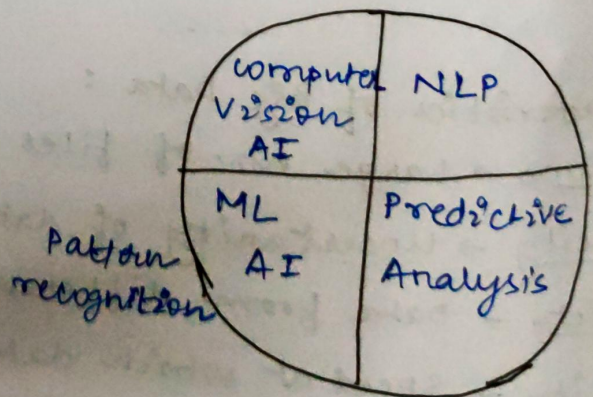 Computer
Vision
AI
NLP
ML
AI
Predictive
Analysis
Pattern
recognition